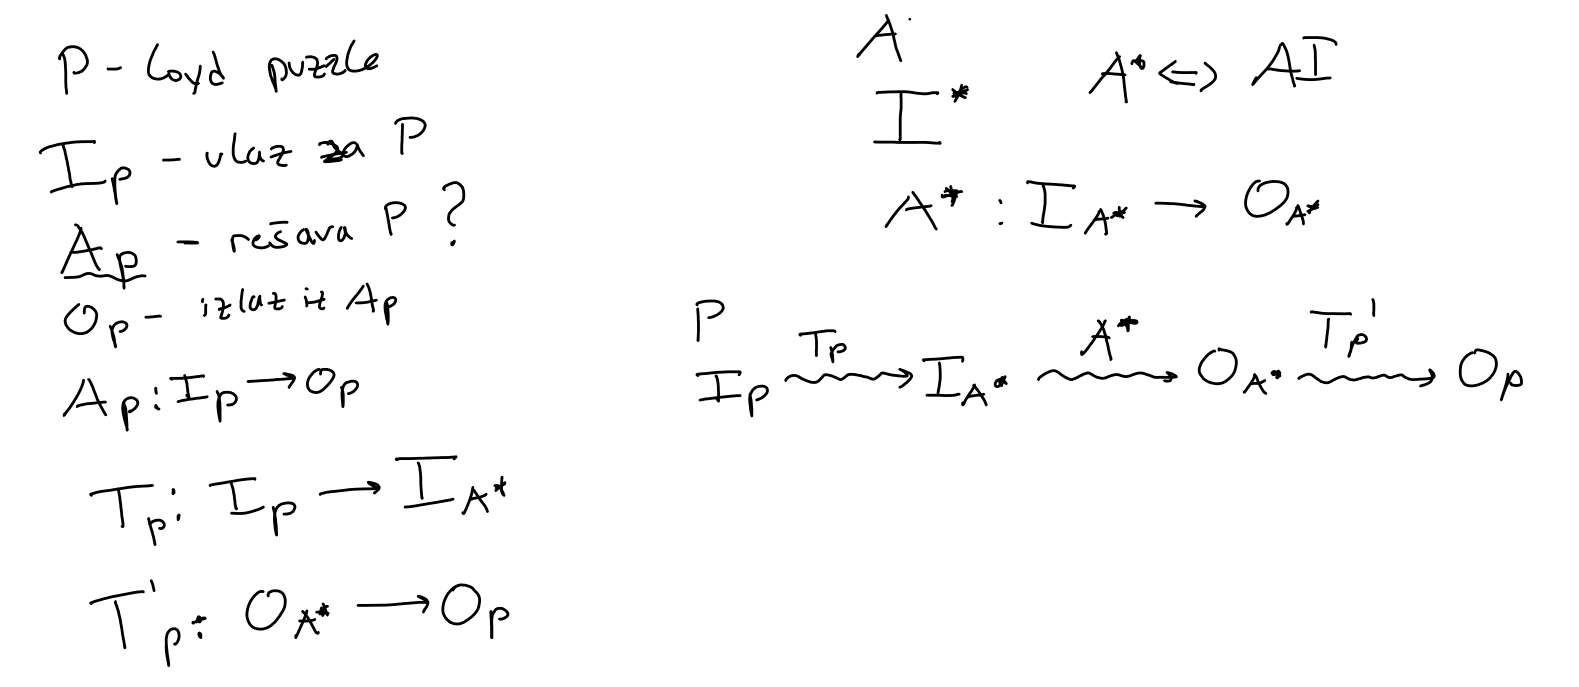 P - Loyd puzzle
I_p - ulaz za P
A_p - rešava P ?
O_p - izlaz iz A_p
A_p : I_p → O_p
T_p : I_p → I_A*
T'_p : O_A* → O_p
A
I*
A* ⇔ AI
A* : I_A* → O_A*
P
T_p A* T_p'
I_p → I_A* → O_A* → O_p